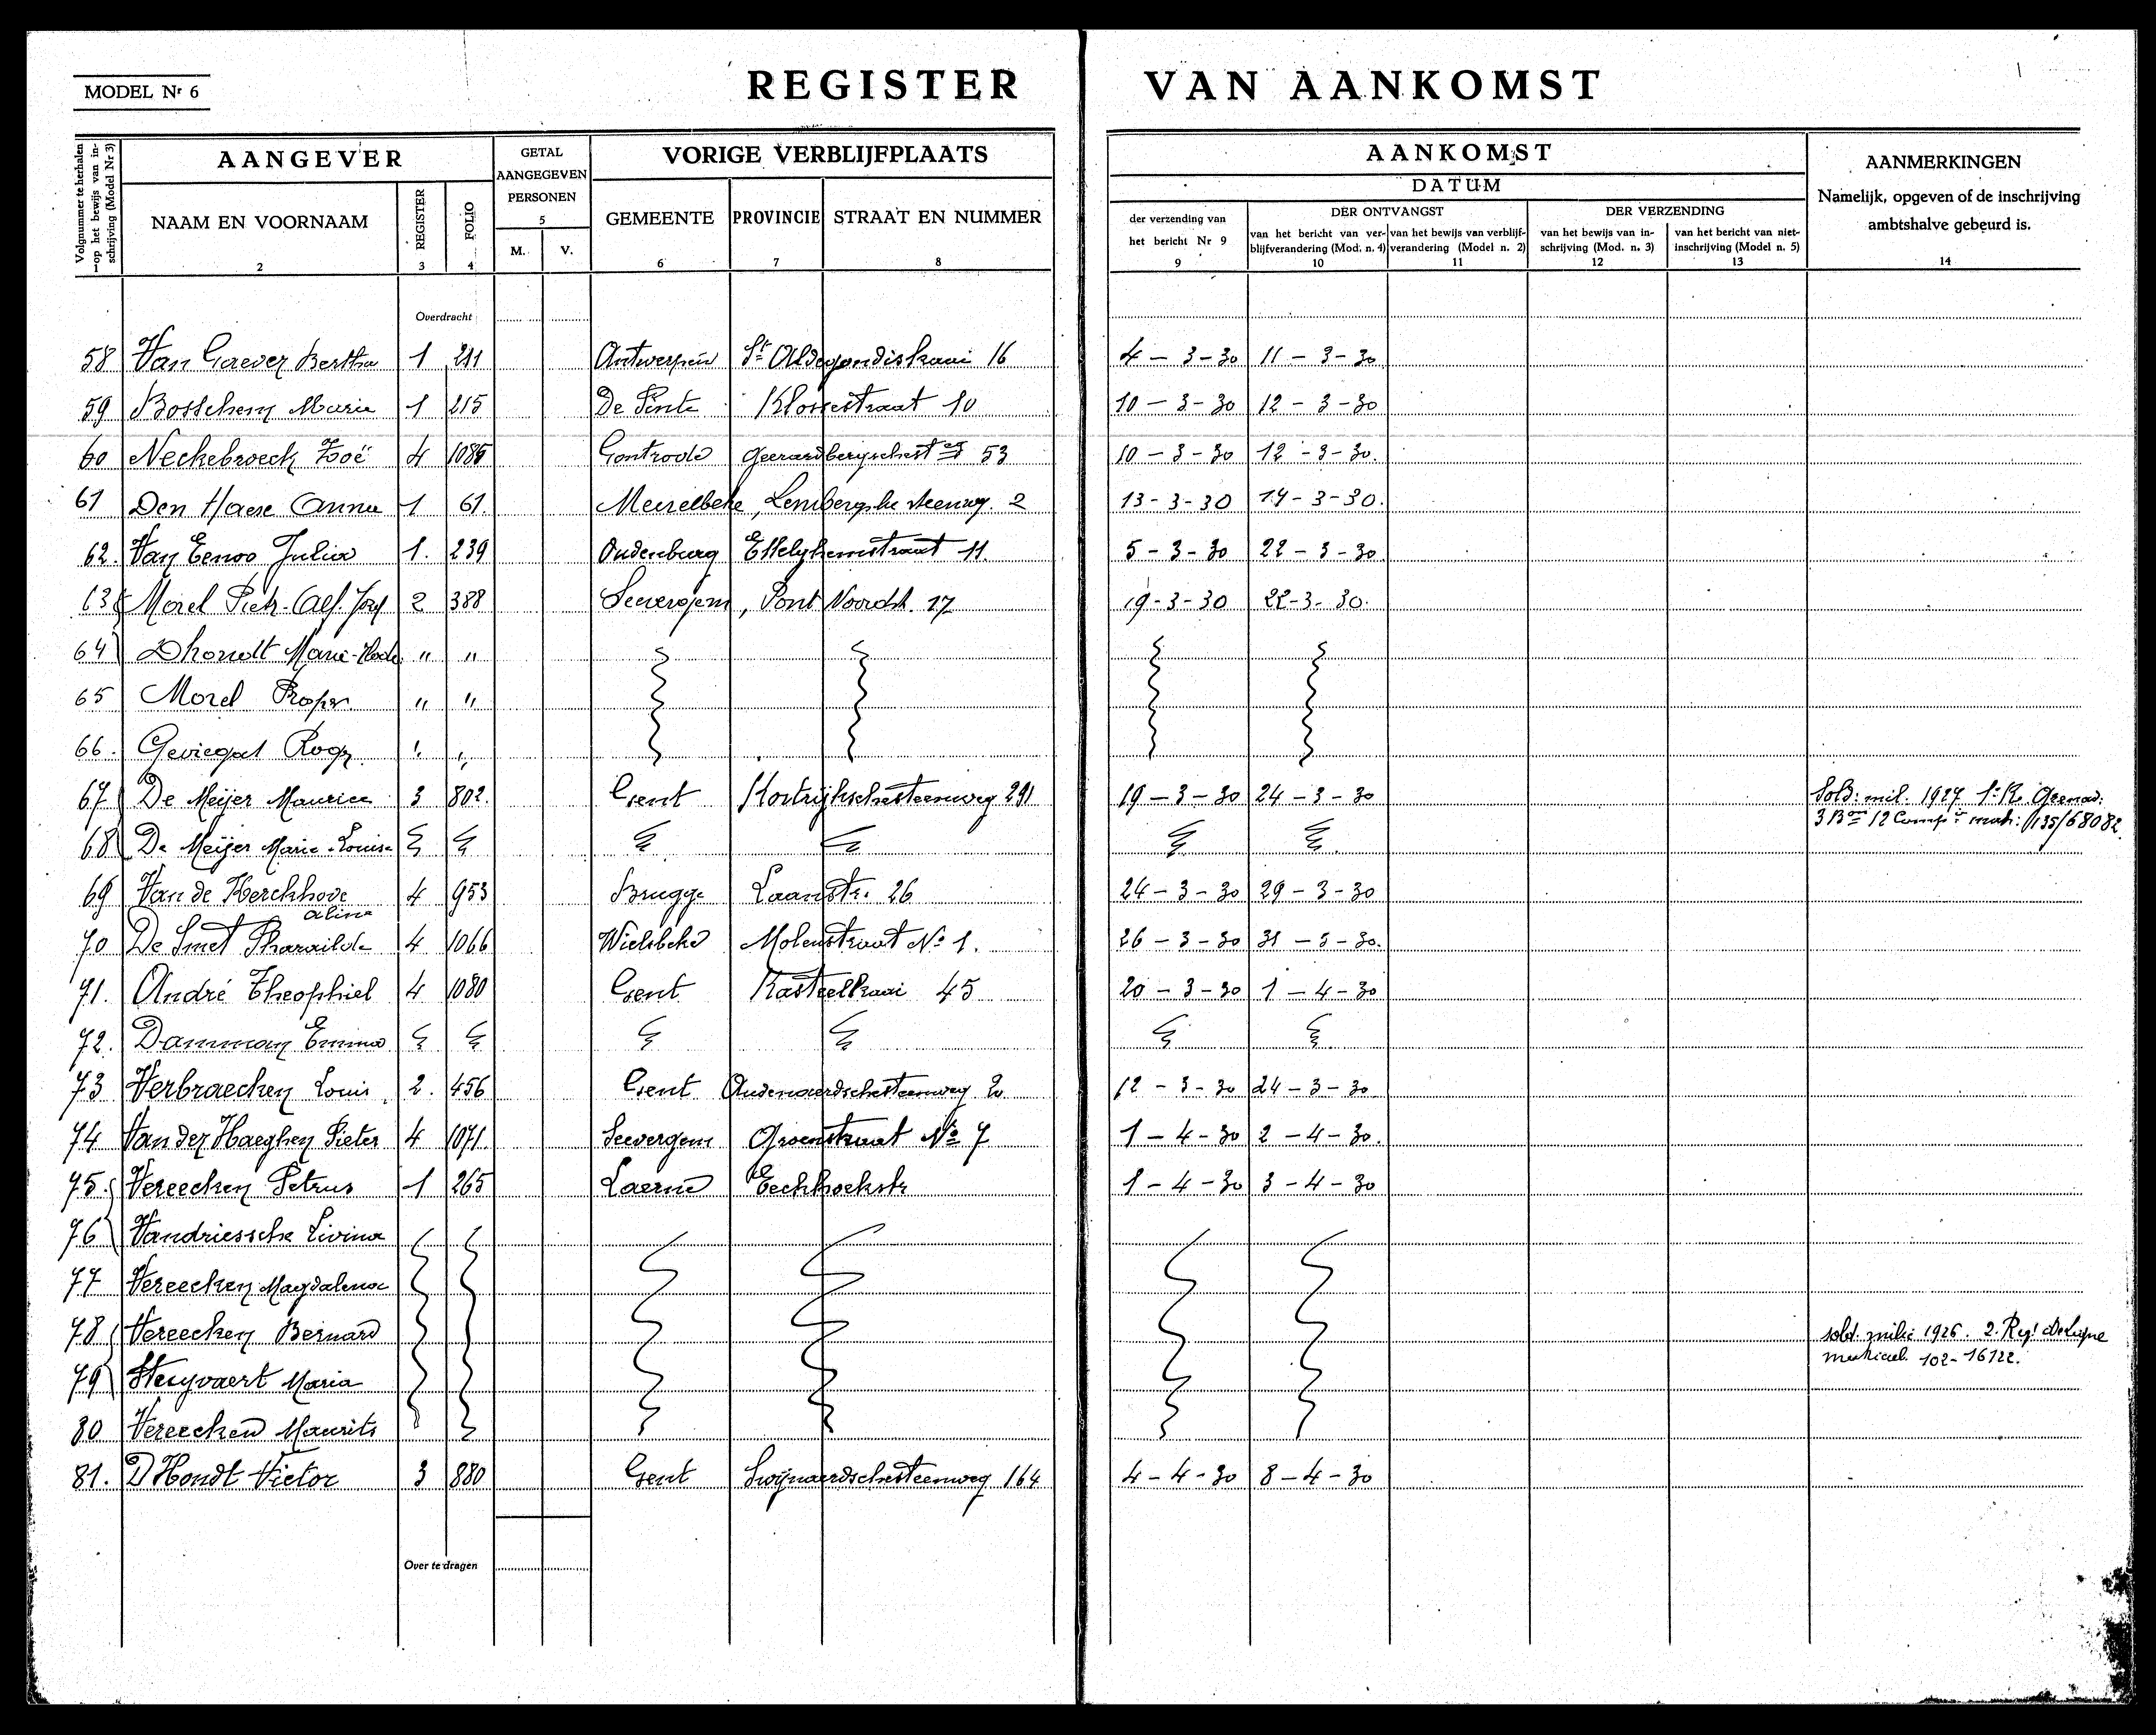 MODEL Nr 6
REGISTER VAN AANKOMST
Volgnummer te herhalen op het bewijs van inschrijving (Model Nr 3)
AANGEVER
GETAL AANGEGEVEN PERSONEN
VORIGE VERBLIJFPLAATS
AANKOMST
DATUM
AANMERKINGEN
Namelijk, opgeven of de inschrijving
ambtshalve gebeurd is.
NAAM EN VOORNAAM REGISTER FOLIO M. V. GEMEENTE PROVINCIE STRAAT EN NUMMER
der verzending van het bericht Nr 9
DER ONTVANGST
van het bericht van verblijfverandering (Mod. n. 4) van het bewijs van verblijfverandering (Model n. 2)
DER VERZENDING
van het bewijs van inschrijving (Mod. n. 3) van het bericht van niet-inschrijving (Model n. 5)
1 2 3 4 5 6 7 8 9 10 11 12 13 14
Overdracht
58 Van Gaever Bertha 1 211 Antwerpen St Aldegondiskaai 16 4-3-30 11-3-30
59 Bosschem Marie 1 215 De Pinte Klossestraat 10 10-3-30 12-3-30
60 Neckebroeck Zoë 4 Gontrode 53 10-3-30 12-3-30.
61 Den Haese Anna 1 61. Meirelbeke, Lembergsche steenweg. 2 13-3-30 14-3-30.
62. Van Eenoo Julia 1. 239 Oudenburg Ettelghemstraat 11. 5-3-30 22-3-30
63 Morel Piet. Alf. Jozef 2 388 Seevergem, Pont Noordst. 17 19-3-30 22-3-30.
64 Dhondt Marie " "
65 Morel Prosper " "
66. Roger " "
67 De Meijer Maurice 3 802. Gent Kortrijkschesteenweg 291 19-3-30 24-3-30 Sold: mil. 1927 1e R. Grenad:
3 Bon 12 Comp: matr: 1135/68082.
68 De Meijer Marie-Louise
69 Van de Kerckhove 4 953 Brugge Laanstr. 26 24-3-30 29-3-30
Alina
70 De Smet Pharailde 4 1066 Wielsbeke Molenstraat No 1. 26-3-30 31-3-30.
71. André Theophiel 4 1080 Gent Kasteelkaai 45 20-3-30 1-4-30
72. Damman Emma
73 Verbraecken Louis 2. 456 Gent Oudenaardschesteenweg 12-3-30 24-3-30
74 Van der Haeghen Pieter 4 1071. Seevergem Groenstraat No 7 1-4-30 2-4-30.
75. Vereecken Petrus 1 265 Laerne Eechhoekstr 1-4-30 3-4-30
76 Vandriessche Livina
77 Vereecken Magdalena
78 Vereecken Bernard sold. milic 1926. 2. Regt De Ligne
matricul. 102-16122.
79 Steyvaert Maria
80 Vereecken Maurits
81. D'Hondt Victor 3 880 Gent Swijnaerdschesteenweg 164 4-4-30 8-4-30
Over te dragen